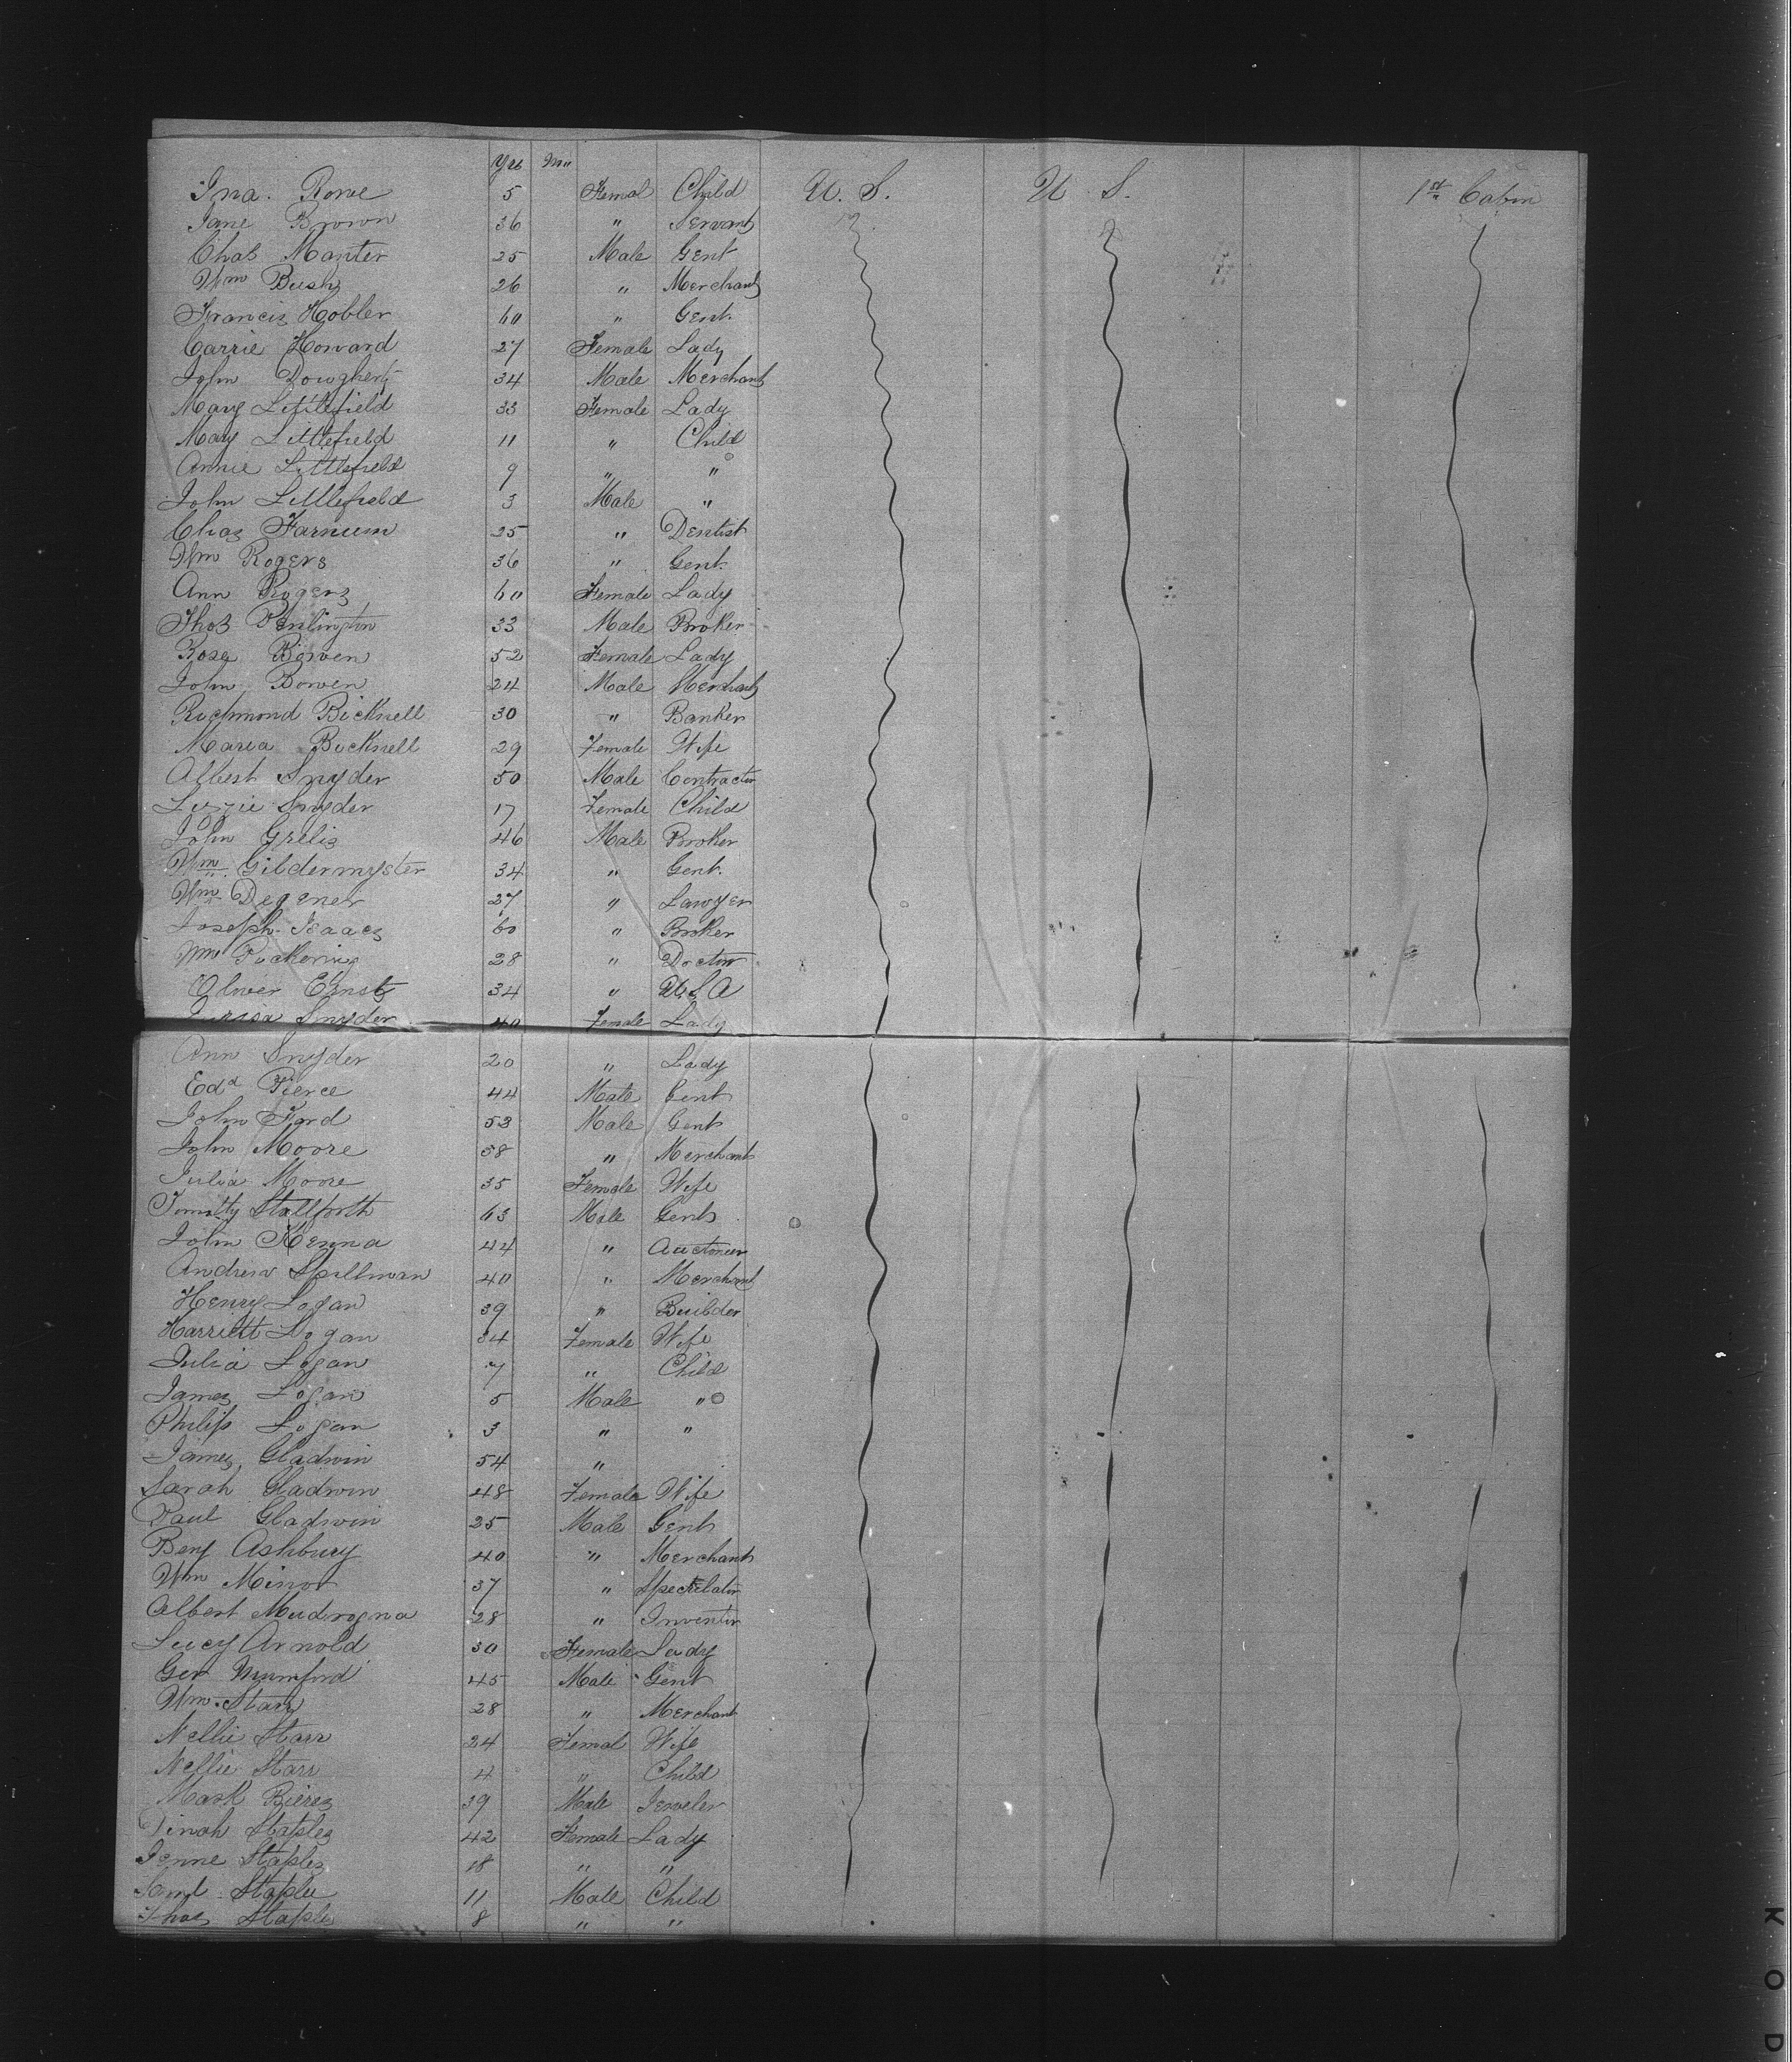 Yrs Mo
Ina. Rowe 5 Femal Child U. S. U S. 1st Cabin
Jane Brown 36 " Servant
Chas Manter 25 Male Gent
Wm Bush 26 " Merchant
Francis Hobler 60 " Gent.
Carrie Howard 27 Female Lady
John Dougherty 34 Male Merchant
Mary Littlefield 33 Female Lady
Mary Littlefield 11 " Child
Annie Littlefield 9 " "
John Littlefield 3 Male "
Chas Farnum 25 " Dentist
Wm Rogers 36 " Gent.
Ann Rogers 60 Female Lady
Thos 33 Male Broker
Rosa Bowen 52 Female Lady
John Bowen 24 Male Merchant
Richmond Bicknell 30 " Banker
Maria Bicknell 29 Female Wife
Albert Snyder 50 Male Contractor
Lizzie Snyder 17 Female Child
John 46 Male Broker
Wm. Gildermyster 34 " Gent.
Wm Degener 27 " Lawyer
Joseph Isaacs 60 " Broker
Wm Pickering 28 " Doctor
Oliver Ernst 34 " U.S.A
Snyder 40 Female Lady
Ann Snyder 20 " Lady
Edd Pierce 44 Male Gent
John Ford 53 Male Gent
John Moore 58 " Merchant
Julia Moore 35 Female Wife
Stallforth 63 Male Gent
John Kenna 44 " Auctoneer
Andrew Spillman 40 " Merchant
Henry Logan 39 " Builder
Harriett Logan 34 Female Wife
Julia Logan 7 " Child
James Logan 5 Male "
Philip Logan 3 " "
James Gladwin 54 "
Sarah Gladwin 48 Female Wife
Paul Gladwin 25 Male Gent
Benj Ashbury 40 " Merchant
Wm Minor 37 " Speculator
Albert 28 " Inventor
Lucy Arnold 30 Female Lady
Geo Mumford 45 Male Gent
Wm. Starr 28 " Merchant
Nellie Starr 24 Femal Wife
Nellie Starr 4 " Child
Mark 39 Male Jeweler
Dinah Staples 42 Female Lady
Jenne Staples 18 " "
Saml Staples 11 Male Child
Thos Staples 8 " "
K O D